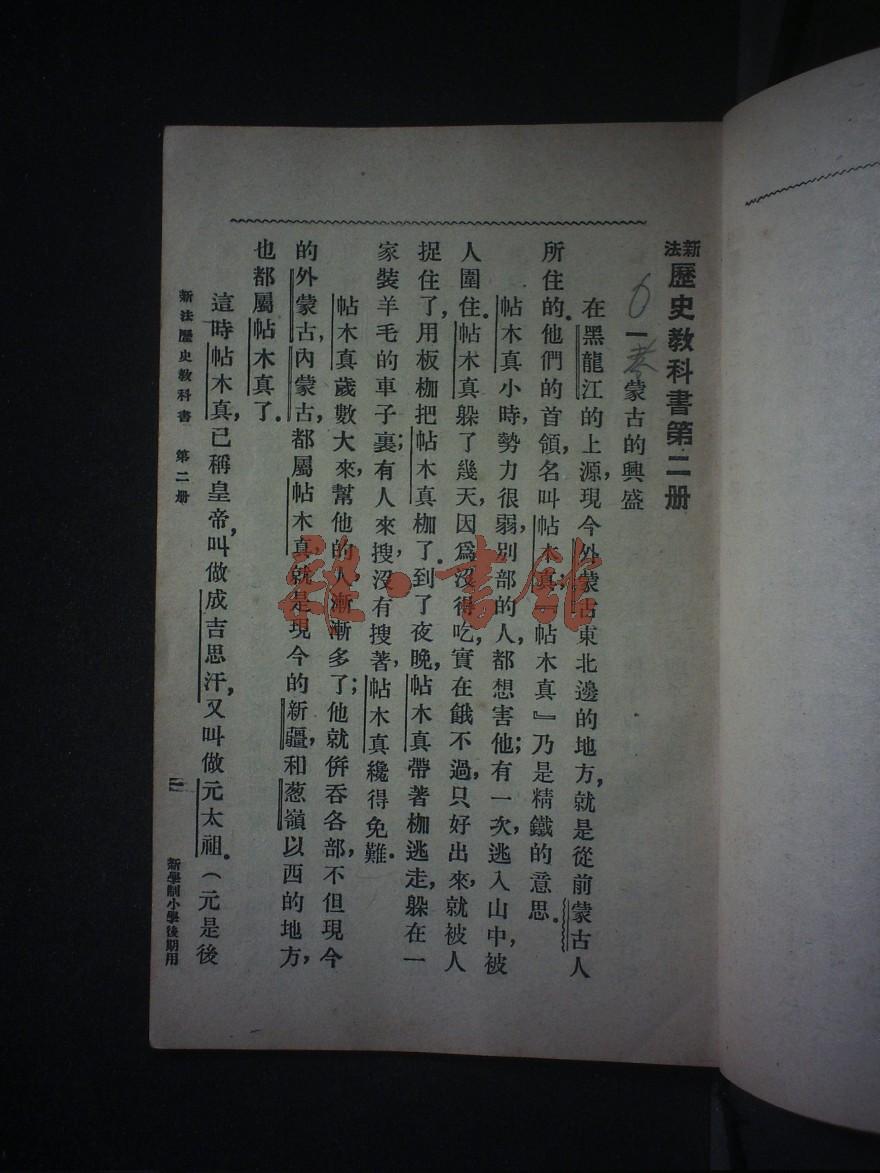 新法歷史教科書第二册
一 蒙古的興盛
在黑龍江的上源,現今外蒙古東北邊的地方,就是從前蒙古人
所住的.他們的首領,名叫帖木真;『帖木真』乃是精鐵的意思.
帖木真小時,勢力很弱,別部的人,都想害他;有一次,逃入山中,被
人圍住.帖木真躲了幾天,因爲沒得吃,實在餓不過,只好出來,就被人
捉住了,用板枷把帖木真枷了.到了夜晚,帖木真帶著枷逃走,躲在一
家裝羊毛的車子裏;有人來搜,沒有搜著,帖木真纔得免難.
帖木真歲數大來,幫他的人,漸漸多了;他就併吞各部,不但現今
的外蒙古,內蒙古,都屬帖木真,就是現今的新疆,和葱嶺以西的地方,
也都屬帖木真了.
這時帖木真,已稱皇帝,叫做成吉思汗,又叫做元太祖.(元是後
新法歷史教科書 第二册
一
新學制小學後期用
雜·書館